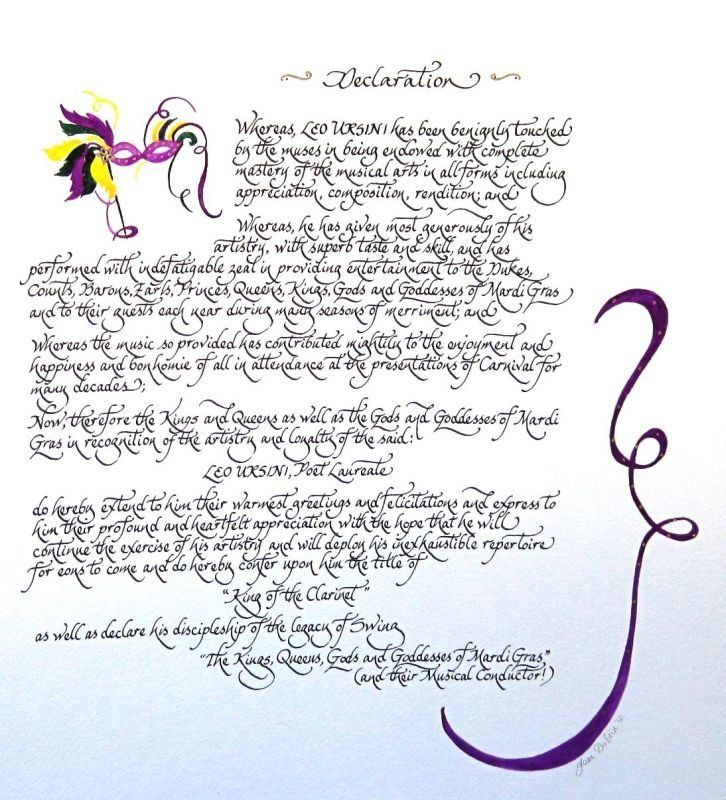 Declaration
Whereas, LEO URSINI has been benignly touched
by the muses in being endowed with complete
mastery of the musical arts in all forms including
appreciation, composition, rendition; and
Whereas, he has given most generously of his
artistry, with superb taste and skill, and has
performed with indefatigable zeal in providing entertainment to the Dukes,
Counts, Barons, Earls, Princes, Queens, Kings, Gods and Goddesses of Mardi Gras
and to their guests each year during many seasons of merriment; and
Whereas the music so provided has contributed mightily to the enjoyment and
happiness and bonhomie of all in attendance at the presentations of Carnival for
many decades;
Now, therefore the Kings and Queens as well as the Gods and Goddesses of Mardi
Gras in recognition of the artistry and loyalty of the said:
LEO URSINI, Poet Laureate
do hereby extend to him their warmest greetings and felicitations and express to
him their profound and heartfelt appreciation with the hope that he will
continue the exercise of his artistry and will deploy his inexhaustible repertoire
for eons to come and do hereby confer upon him the title of
"King of the Clarinet"
as well as declare his discipleship of the legacy of Swing
"The Kings, Queens, Gods and Goddesses of Mardi Gras"
(and their Musical Conductor!)